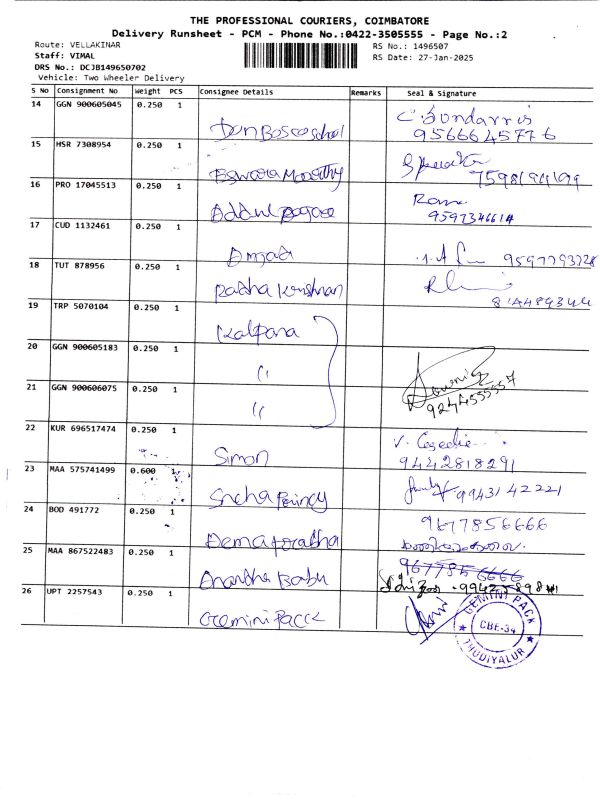 THE PROFESSIONAL COURIERS, COIMBATORE
Delivery Runsheet - PCM - Phone No.:0422-3505555 - Page No.:2
Route: VELLAKINAR
RS No.: 1496507
Staff: VIMAL
RS Date: 27-Jan-2025
DRS No.: DCJB149650702
Vehicle: Two Wheeler Delivery
S No Consignment No Weight PCS Consignee Details Remarks Seal & Signature
14 GGN 900605045 0.250 1
Don Bosco school 9566645776
15 HSR 7308954 0.250 1
16 PRO 17045513 0.250 1
9597346614
17 CUD 1132461 0.250 1
Amjad 9597793728
18 TUT 878956 0.250 1
Radha Krishnan
19 TRP 5070104 0.250 1
Kalpana
20 GGN 900605183 0.250 1
"
21 GGN 900606075 0.250 1
" 9244555557
22 KUR 696517474 0.250 1
Simon 9442818291
23 MAA 575741499 0.600 1
9943142221
24 BOD 491772 0.250 1
9677856666
25 MAA 867522483 0.250 1
9677856666
Anantha Babu
26 UPT 2257543 0.250 1
Gemini Pack
GEMINI PACK
CBE-34
THUDIYALUR